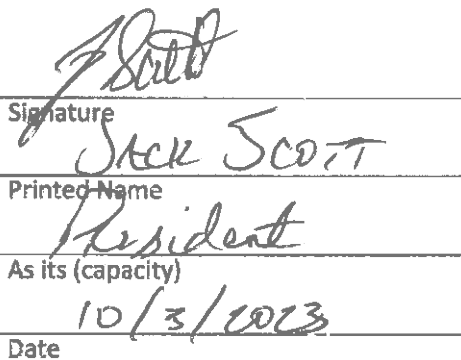 J Scott
Signature
JACK SCOTT
Printed Name
President
As its (capacity)
10/3/2023
Date